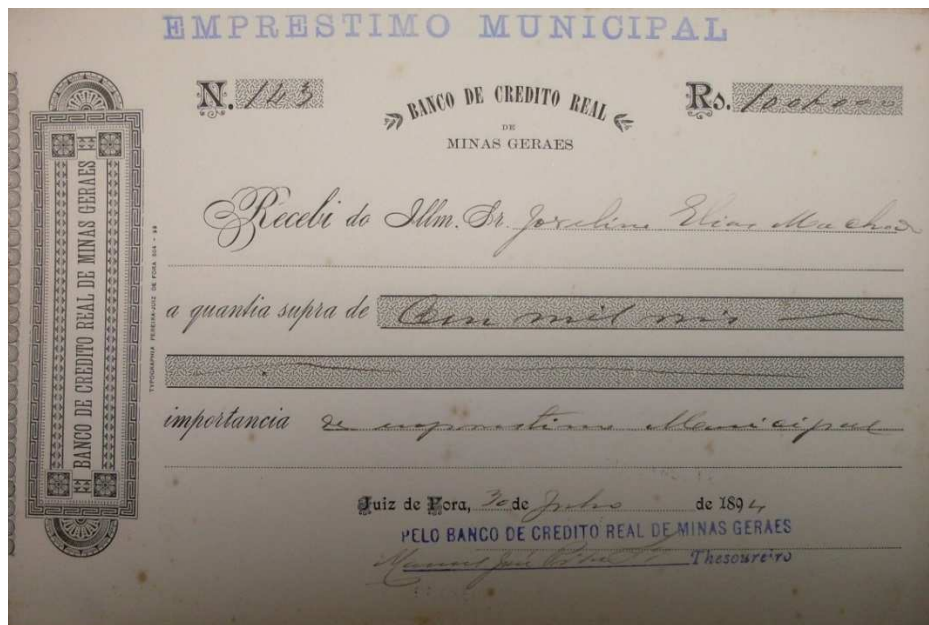 EMPRESTIMO MUNICIPAL
BANCO DE CREDITO REAL DE MINAS GERAES
N. 143
BANCO DE CREDITO REAL
DE
MINAS GERAES
Rs. 100$000
Recebi do Illm. Sr. Joselino Elias Machado
a quantia supra de Cem mil reis
importancia de emprestimo Municipal
Juiz de Fora, 30 de Julho de 1894
PELO BANCO DE CREDITO REAL DE MINAS GERAES
Manoel José
Thesoureiro